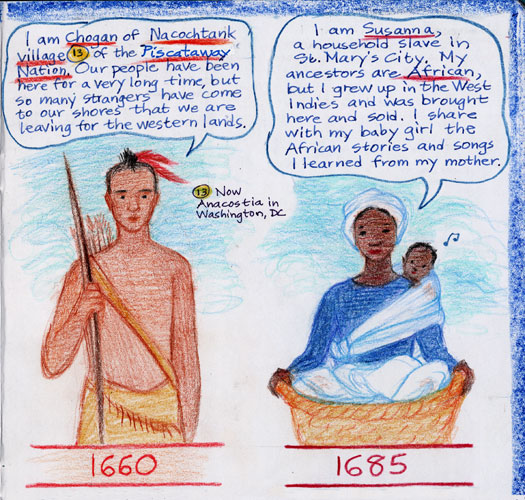 I am Chogan of Nacochtank
village 13 of the Piscataway
Nation. Our people have been
here for a very long time, but
so many strangers have come
to our shores that we are
leaving for the western lands.
13 Now
Anacostia in
Washington, DC
1660
I am Susanna,
a household slave in
St. Mary's City. My
ancestors are African,
but I grew up in the West
Indies and was brought
here and sold. I share
with my baby girl the
African stories and songs
I learned from my mother.
1685